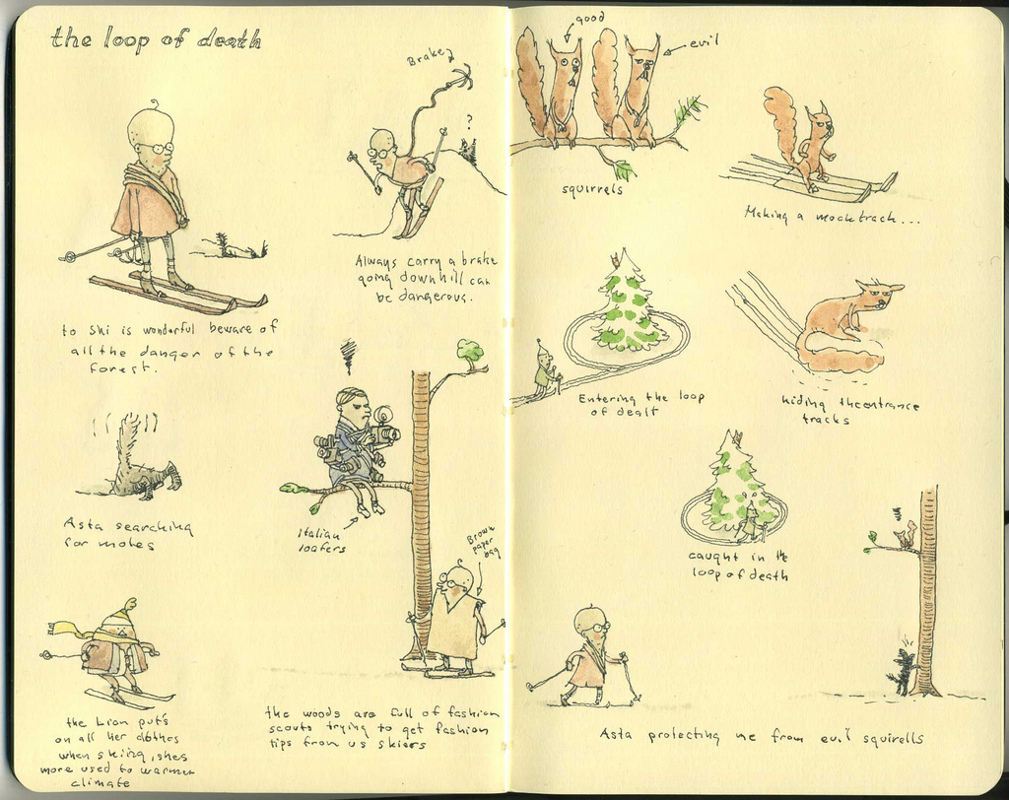 the loop of death
Brake
?
Always carry a brake
going downhill can
be dangerous.
to ski is wonderful beware of
all the danger of the
forest.
Asta searching
for moles
Italian
loafers
Brown
paper
bag
the Lion put's
on all her clothes
when skiing, shes
more used to warmer
climate
the woods are full of fashion
scouts trying to get fashion
tips from us skiers
good
evil
squirrels
Making a mock track...
Entering the loop
of dealt
hiding the entrance
tracks
caught in the
loop of death
Asta protecting me from evil squirells